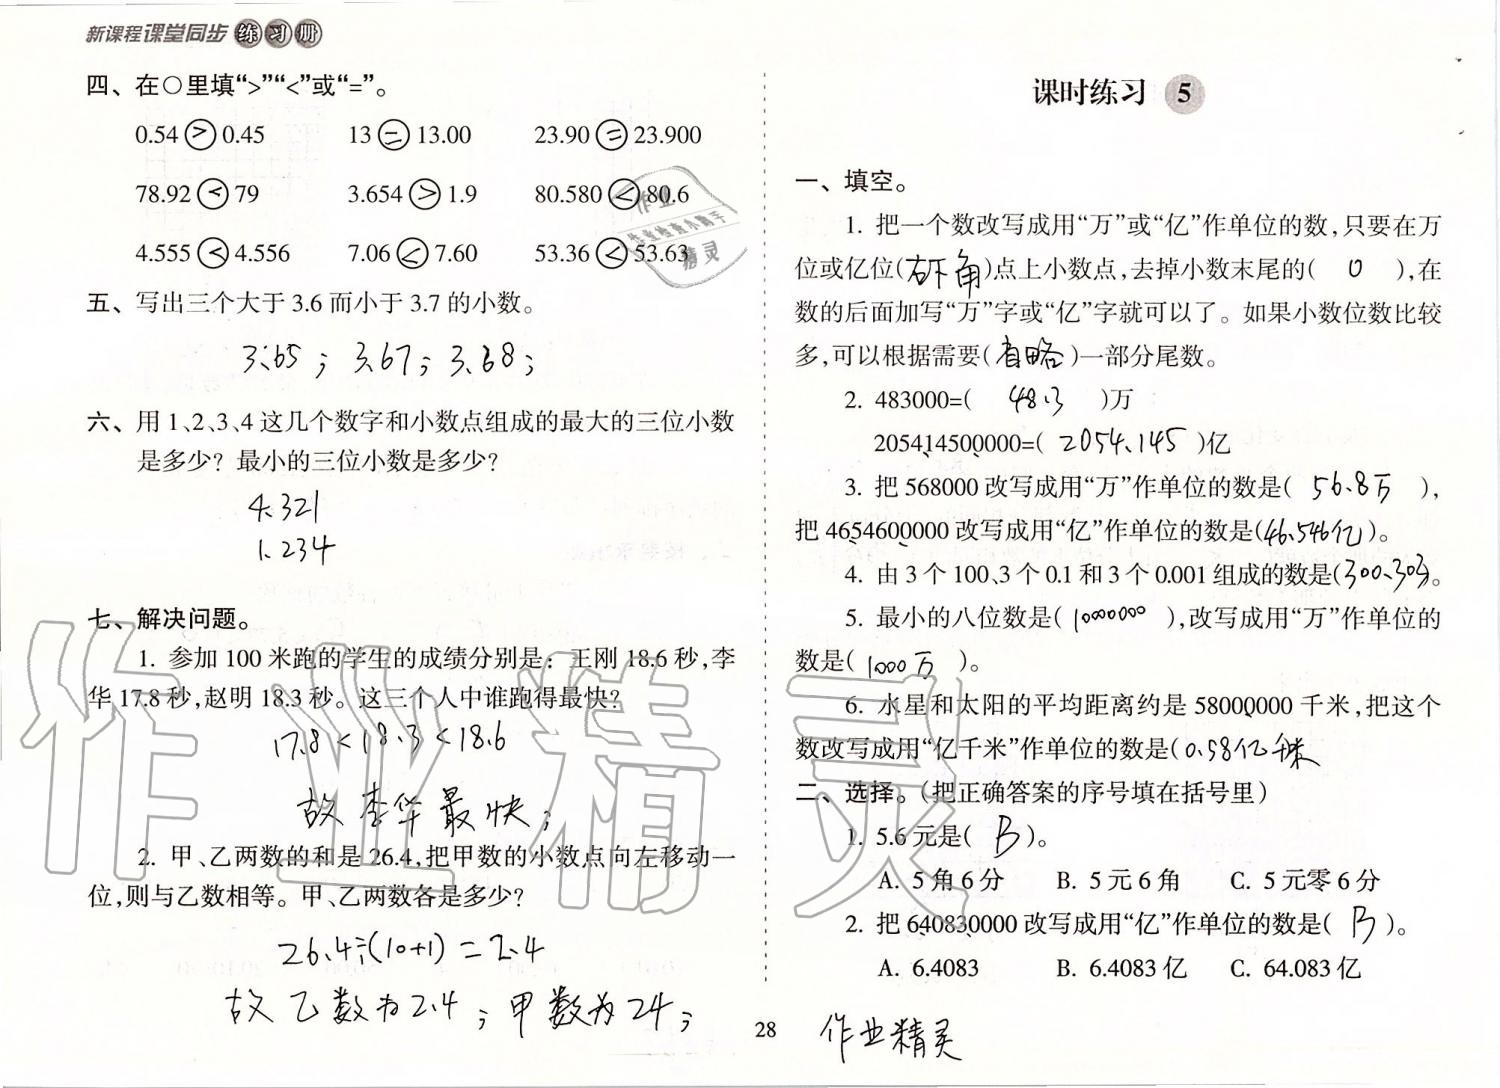 新课程课堂同步练习册
四、在○里填“>”“<”或“=”。
0.54 > 0.45 13 = 13.00 23.90 = 23.900
78.92 < 79 3.654 > 1.9 80.580 < 80.6
4.555 < 4.556 7.06 < 7.60 53.36 < 53.63
五、写出三个大于 3.6 而小于 3.7 的小数。
3.65; 3.67; 3.68;
六、用 1、2、3、4 这几个数字和小数点组成的最大的三位小数
是多少? 最小的三位小数是多少?
4.321
1.234
七、解决问题。
1. 参加 100 米跑的学生的成绩分别是: 王刚 18.6 秒,李
华 17.8 秒,赵明 18.3 秒。这三个人中谁跑得最快?
17.8<18.3<18.6
故李华最快;
2. 甲、乙两数的和是 26.4,把甲数的小数点向左移动一
位,则与乙数相等。甲、乙两数各是多少?
26.4÷(10+1)=2.4
故乙数为2.4;甲数为24;
28
课时练习 5
一、填空。
1. 把一个数改写成用“万”或“亿”作单位的数,只要在万
位或亿位(右下角)点上小数点,去掉小数末尾的( 0 ),在
数的后面加写“万”字或“亿”字就可以了。如果小数位数比较
多,可以根据需要(省略)一部分尾数。
2. 483000=( 48.3 )万
205414500000=( 2054.145 )亿
3. 把 568000 改写成用“万”作单位的数是( 56.8万 ),
把 4654600000 改写成用“亿”作单位的数是(46.546亿)。
4. 由 3 个 100、3 个 0.1 和 3 个 0.001 组成的数是(300.303)。
5. 最小的八位数是( 10000000 ),改写成用“万”作单位的
数是( 1000万 )。
6. 水星和太阳的平均距离约是 58000000 千米,把这个
数改写成用“亿千米”作单位的数是(0.58亿千米
二、选择。(把正确答案的序号填在括号里)
1. 5.6 元是( B )。
A. 5 角 6 分 B. 5 元 6 角 C. 5 元零 6 分
2. 把 640830000 改写成用“亿”作单位的数是( B )。
A. 6.4083 B. 6.4083 亿 C. 64.083 亿
作业精灵
作业
作业检查小助手
精灵
作业精灵